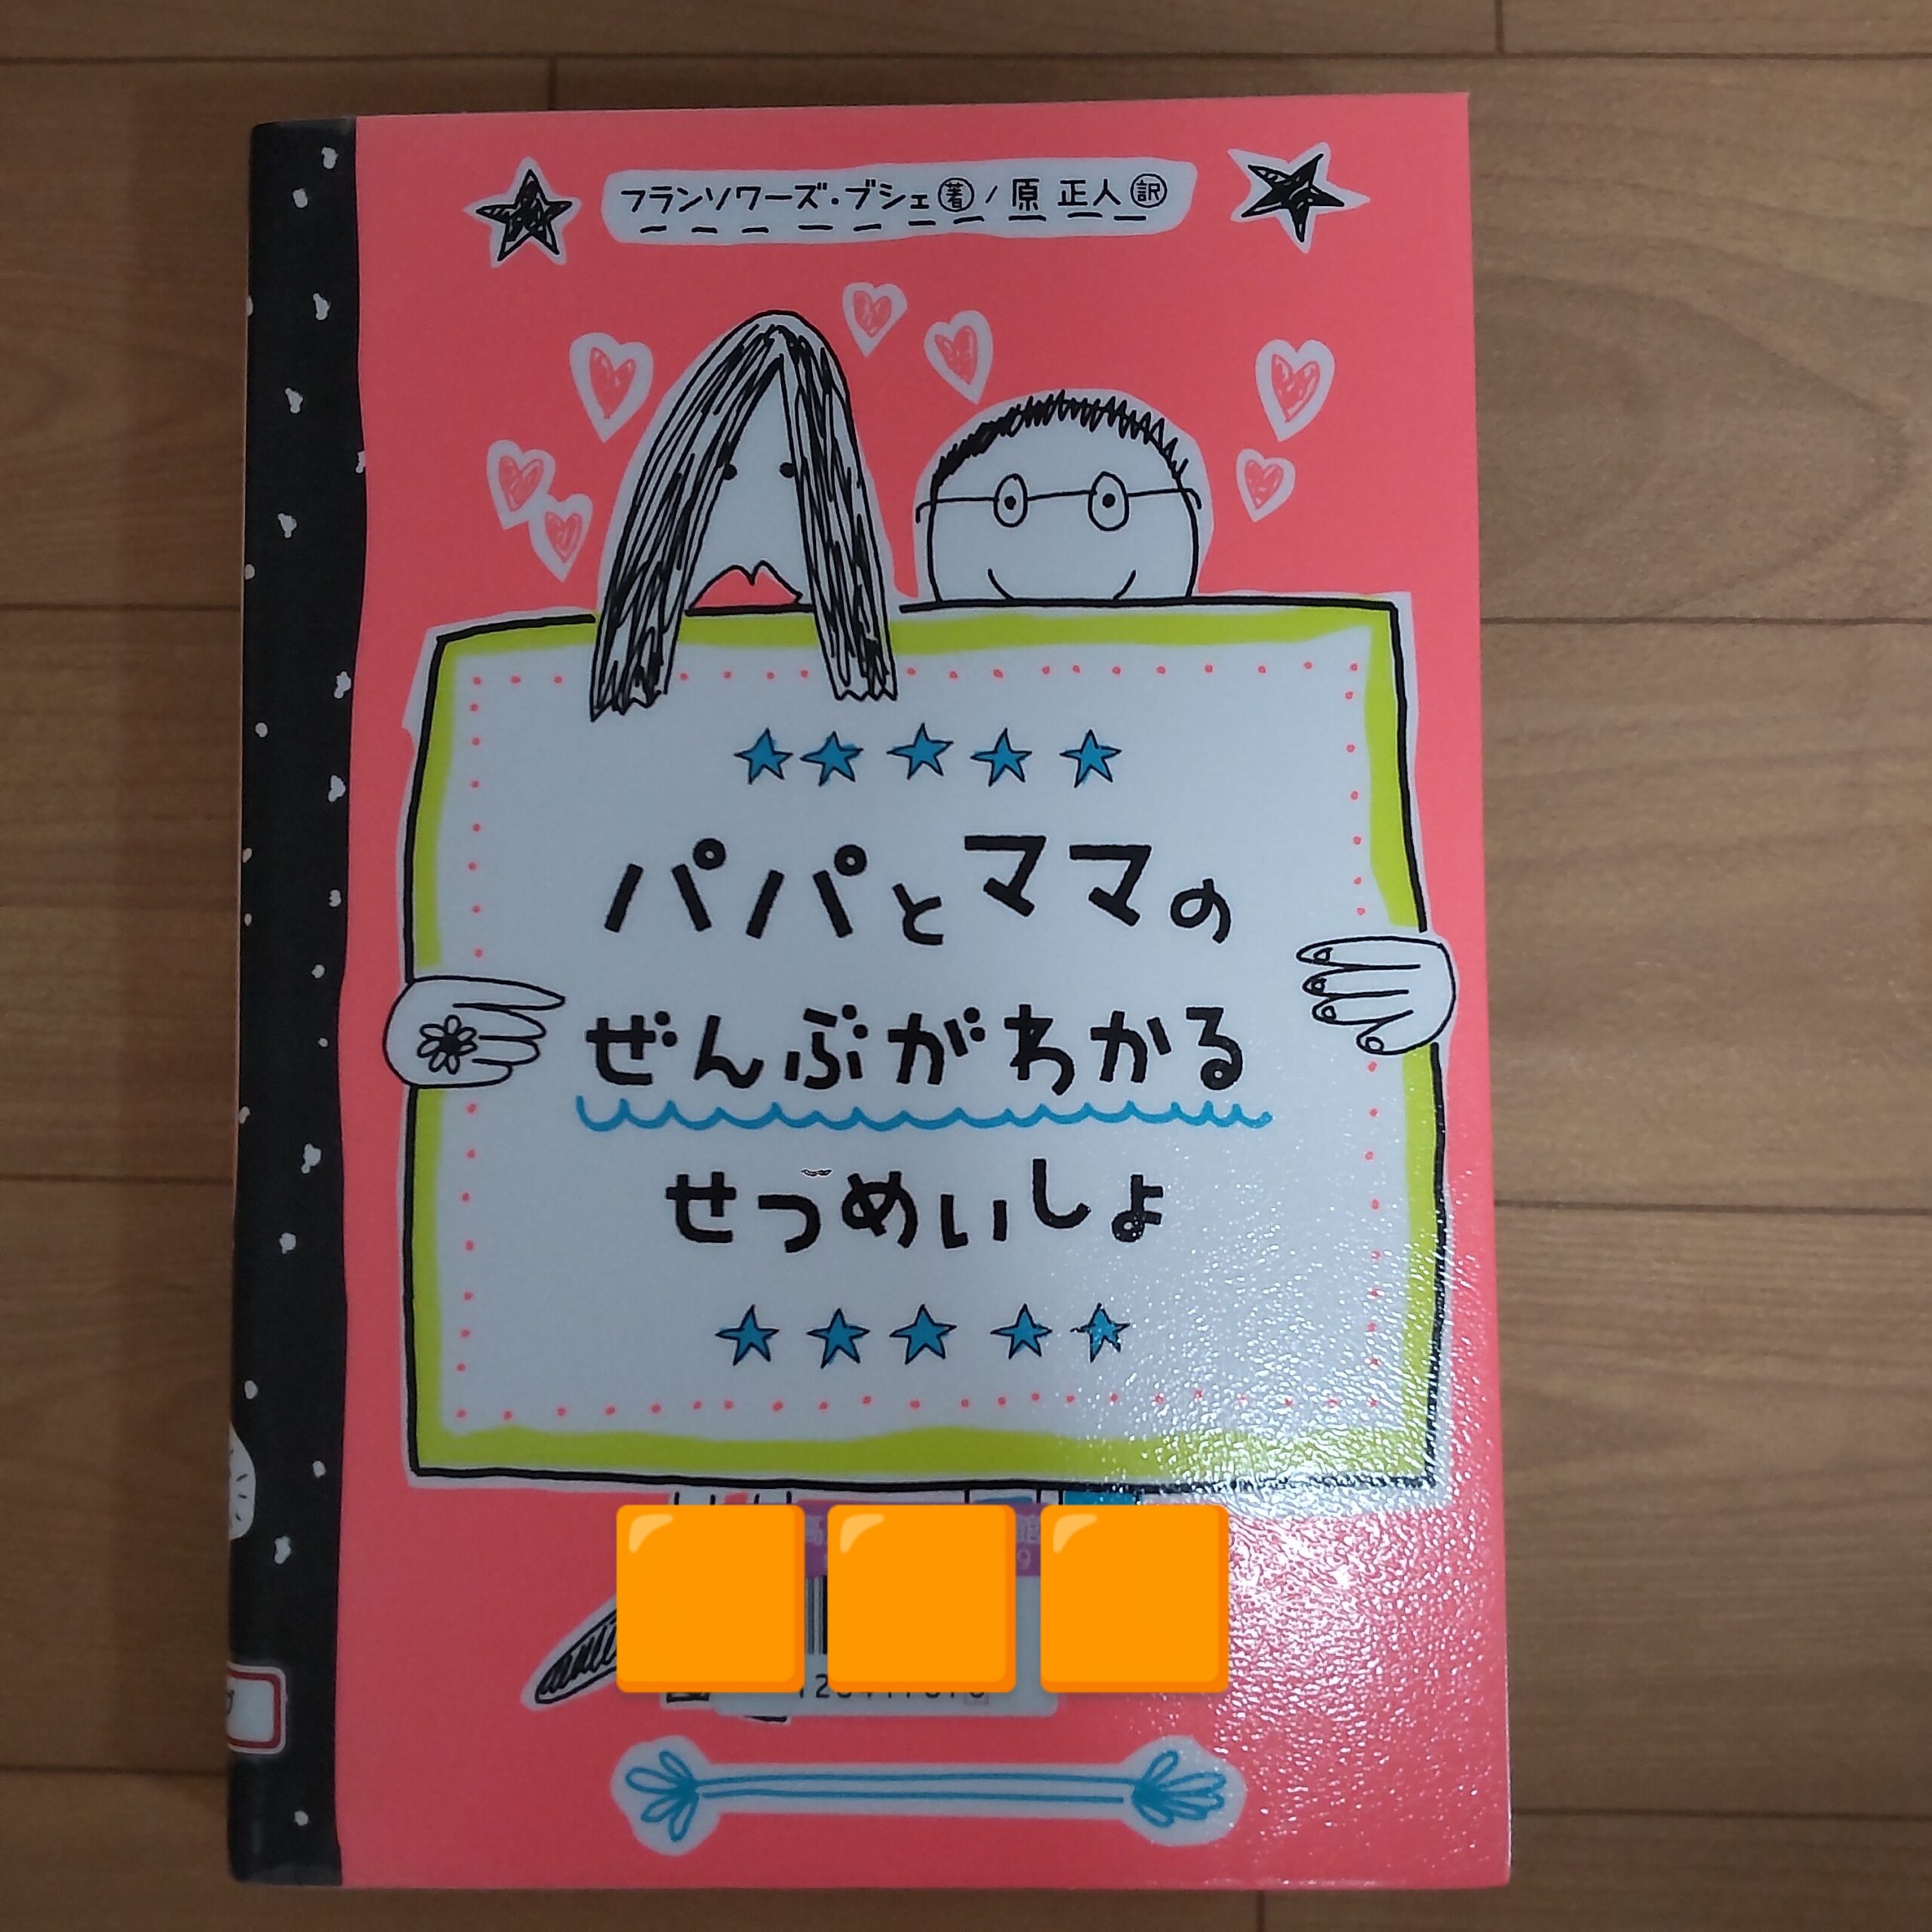 フランソワーズ・ブシェ著/原 正人訳
パパとママの
ぜんぶがわかる
せつめいしょ